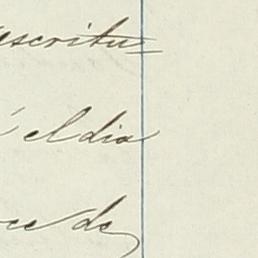 escritu=
el dia
ce de